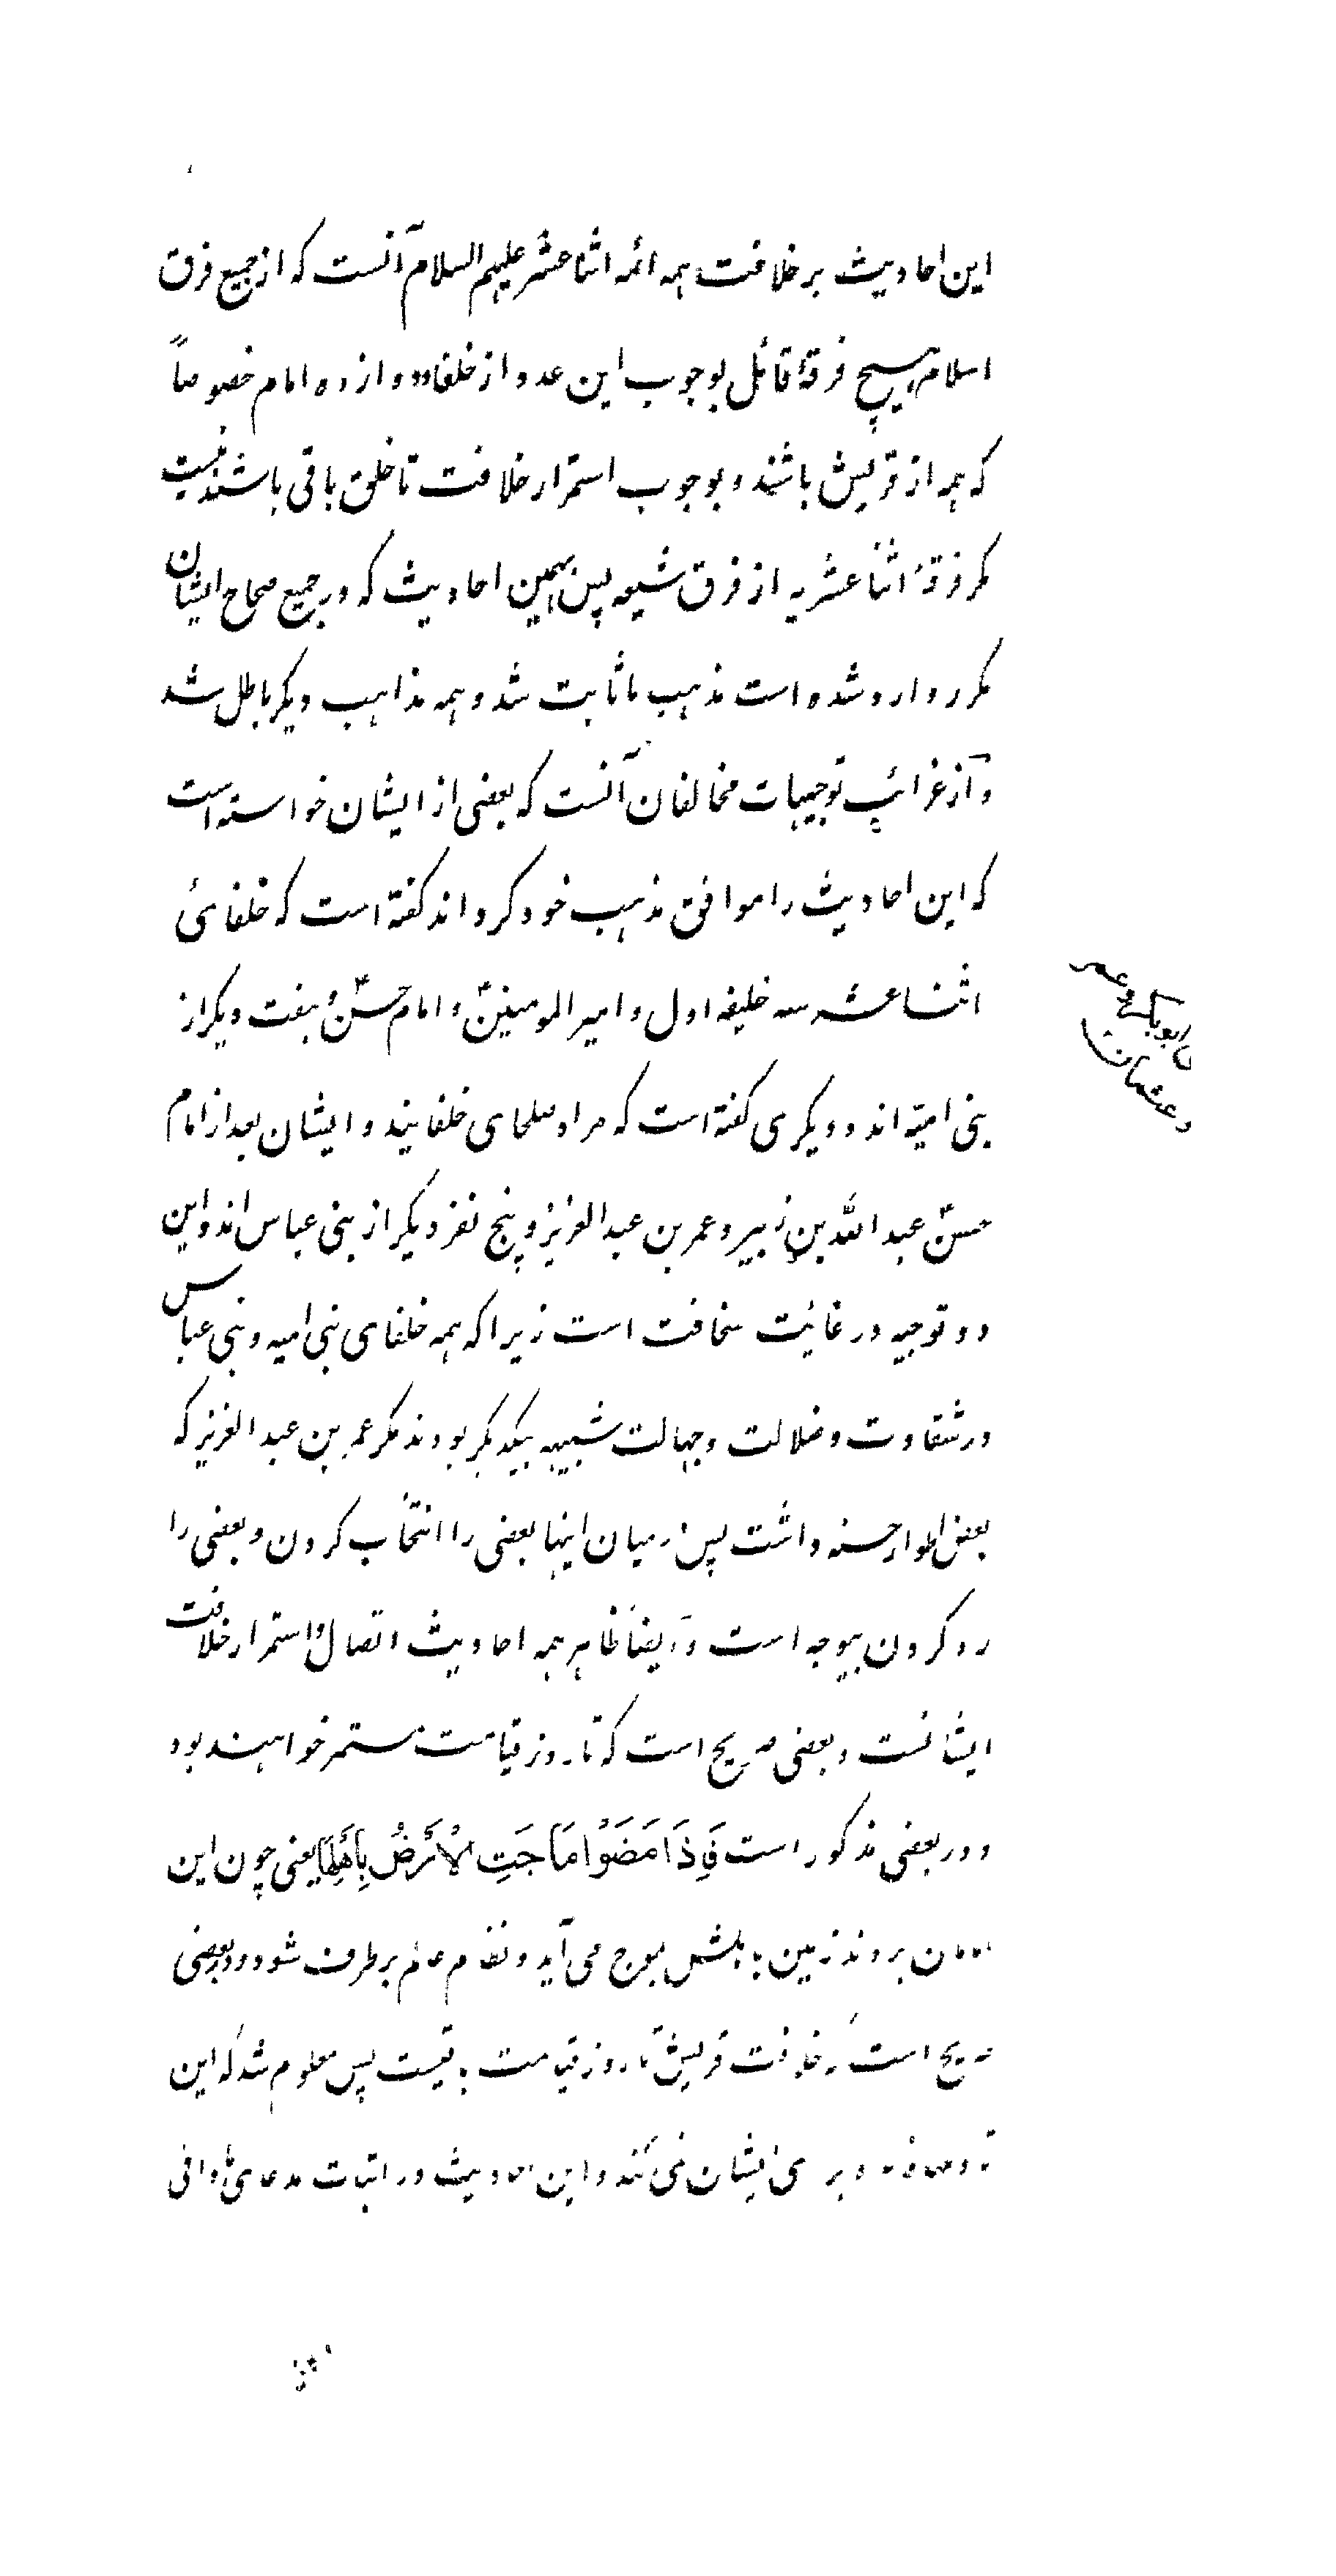 این احادیث بر خلافت همه ائمه اثنا عشر علیهم السلام آنست که از جمیع فرق
اسلام هیچ فرقهٔ قائل بوجوب این عدد از خلفا و دوازده امام خصوصاً
که همه از قریش باشند و بوجوب استمرار خلافت تا خلق باقی باشند نیست
مگر فرقهٔ اثنا عشریه از فرق شیعه پس بهمین احادیث که در جمیع صحاح ایشان
مکرر وارد شده است مذهب ما ثابت شد و همه مذاهب دیگر باطل شد
و از غرائب توجیهات مخالفان آنست که بعضی از ایشان خواسته است
که این احادیث را موافق مذهب خود گرداند گفته است که خلفائی
اثنا عشر سه خلیفه اول و امیر المومنینؑ و امام حسنؑ و هفت دیگر از
ابوبکر و عمر
و عثمان
بنی امیّه اند و دیگری گفته است که مراد صلحای خلفایند و ایشان بعد از امام
حسنؑ عبد الله بن زبیر و عمر بن عبد العزیز و پنج نفر دیگر از بنی عباس اند و این
دو توجیه در غائیت سخافت است زیرا که همه خلفای بنی امیه و بنی عباس
در شقاوت و ضلالت و جهالت شبیهه بیکدیگر بودند مگر عمر بن عبد العزیز که
بعض اطوار حسنه داشت پس از میان اینها بعضی را انتخاب کردن و بعضی را
رد کردن بیوجه است و ایضاً ظاهر همه احادیث اتصال و استمرار خلافت
ایشانست و بعضی صریح است که تا روز قیامت مستمر خواهند بود
و در بعضی مذکور است فَإِذَا مَضَوْا مَاجَتِ الْأَرْضُ بِأَهْلِهَا یعنی چون این
امامان بروند زمین با اهلش بموج می آید و نظام عالم برطرف شود و در بعضی
صریح است که خلافت قریش تا روز قیامت باقیست پس معلوم شد که این
ایشان نمی کند و این احادیث در اثبات مدعای ما وافی